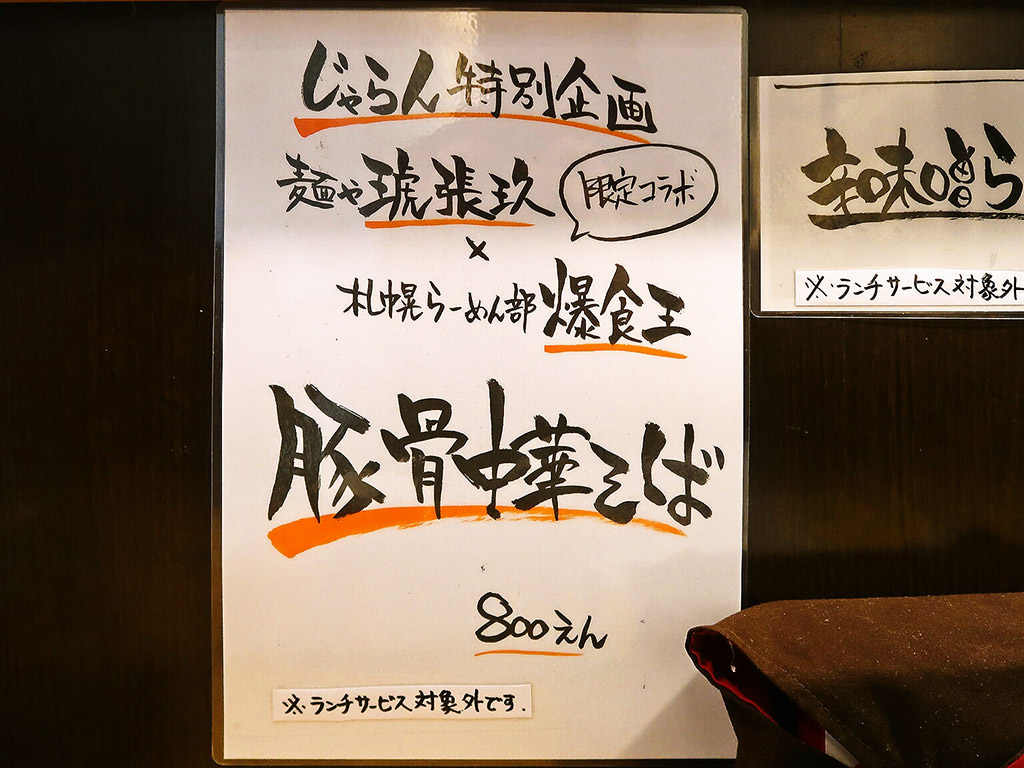 じゃらん特別企画
麺や琥張玖
限定コラボ
×
札幌らーめん部 爆食王
豚骨中華そば
800えん
※ランチサービス対象外です.
辛味噌ら
※ランチサービス対象外